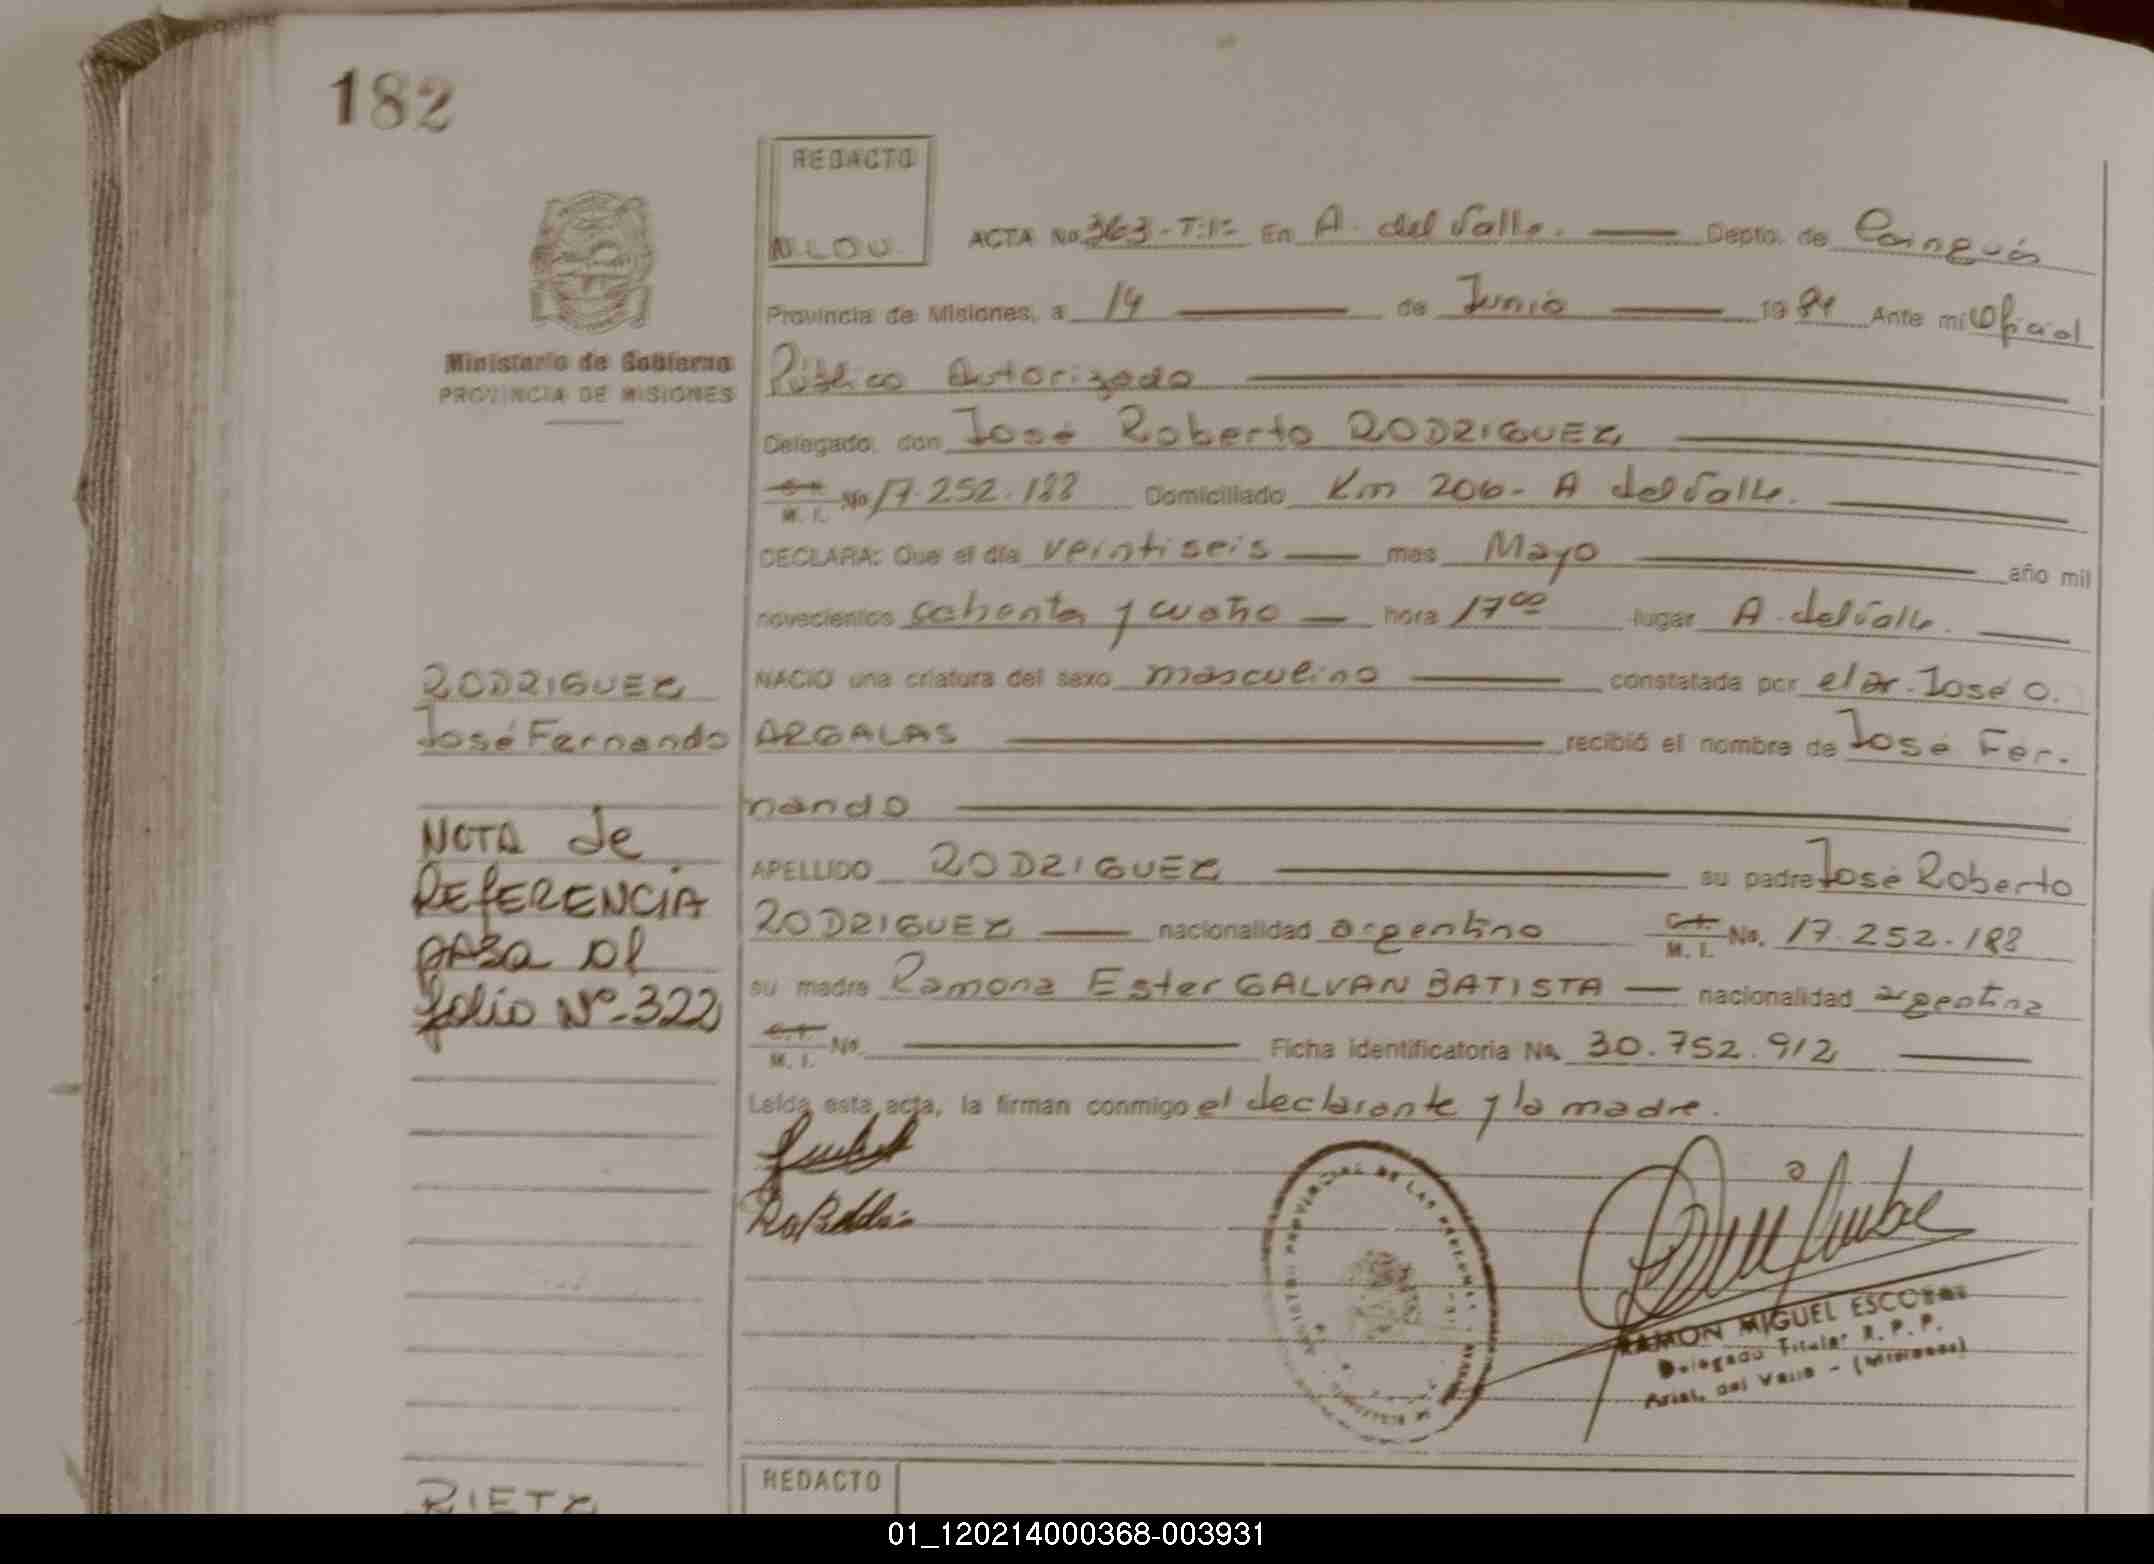 182
REDACTO
N.LOV.
ACTA No 363-T:1º En A. del Valle. Depto. de Cainguás
Provincia de Misiones, a 14 de Junio 1984 Ante mi Oficial
Ministerio de Gobierno
PROVINCIA DE MISIONES
Público Autorizado
Delegado, don José Roberto RODRIGUEZ
C.I. M. I. No 17.252.188 Domiciliado Km 206- A del Valle.
DECLARA: Que el día veintiseis mes Mayo año mil
novecientos ochenta y cuatro hora 17 00 lugar A. del Valle.
RODRIGUEZ
José Fernando
NACIO una criatura del sexo masculino constatada por el Dr. José O.
ARGALAS recibió el nombre de José Fer-
nando
NOTA de
REFERENCIA
PASA al
folio Nº-322
APELLIDO RODRIGUEZ su padre José Roberto
RODRIGUEZ nacionalidad argentino C.I. M. I. No. 17.252.188
su madre Ramona Ester GALVAN BATISTA nacionalidad argentina
C.I. M. I. No. Ficha identificatoria No. 30.752.912
Leída esta acta, la firman conmigo el declarante y la madre.
PROVINCIAL DE LAS PERSONAS
RAMON MIGUEL ESCOBAR
Delegado Titular R. P. P.
Arist. del Valle - (Misiones)
REDACTO
01_120214000368-003931